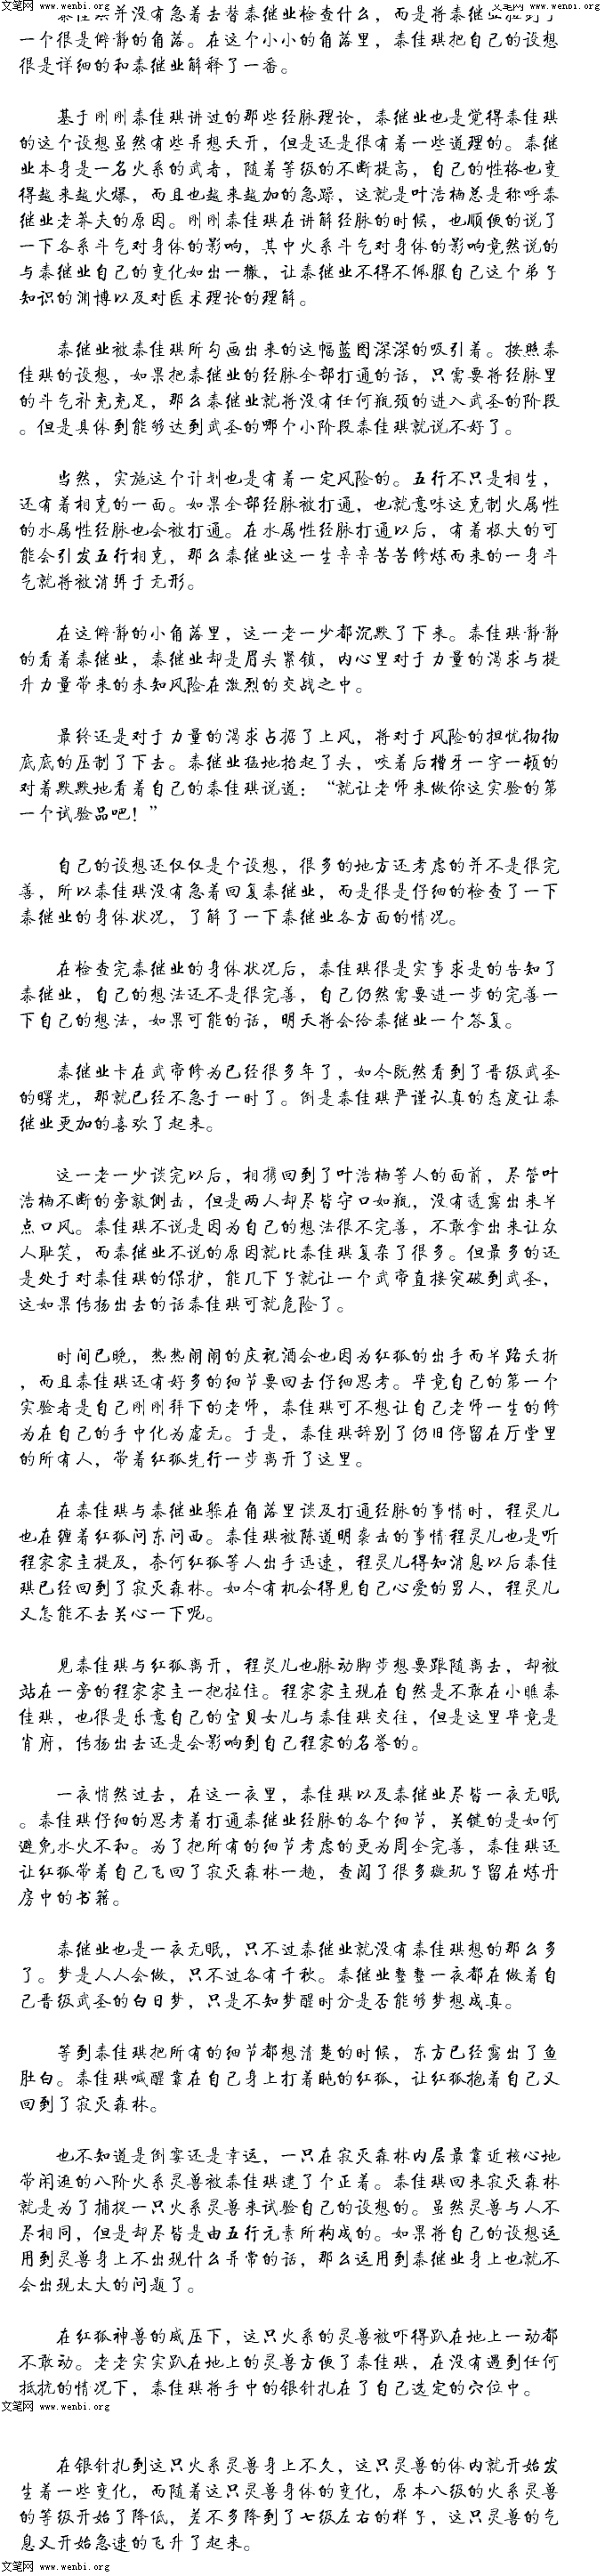 文笔网 www.wenbi.org 文笔网 www.wenbi.org
秦佳琪并没有急着去替秦继业检查什么，而是将秦继业拉到了
一个很是僻静的角落。在这个小小的角落里，秦佳琪把自己的设想
很是详细的和秦继业解释了一番。
基于刚刚秦佳琪讲过的那些经脉理论，秦继业也是觉得秦佳琪
的这个设想虽然有些异想天开，但是还是很有着一些道理的。秦继
业本身是一名火系的武者，随着等级的不断提高，自己的性格也变
得越来越火爆，而且也越来越加的急躁，这就是叶浩楠总是称呼秦
继业老莽夫的原因。刚刚秦佳琪在讲解经脉的时候，也顺便的说了
一下各系斗气对身体的影响，其中火系斗气对身体的影响竟然说的
与秦继业自己的变化如出一辙，让秦继业不得不佩服自己这个弟子
知识的渊博以及对医术理论的理解。
秦继业被秦佳琪所勾画出来的这幅蓝图深深的吸引着。按照秦
佳琪的设想，如果把秦继业的经脉全部打通的话，只需要将经脉里
的斗气补充充足，那么秦继业就将没有任何瓶颈的进入武圣的阶段
。但是具体到能够达到武圣的哪个小阶段秦佳琪就说不好了。
当然，实施这个计划也是有着一定风险的。五行不只是相生，
还有着相克的一面。如果全部经脉被打通，也就意味这克制火属性
的水属性经脉也会被打通。在水属性经脉打通以后，有着极大的可
能会引发五行相克，那么秦继业这一生辛辛苦苦修炼而来的一身斗
气就将被消弭于无形。
在这僻静的小角落里，这一老一少都沉默了下来。秦佳琪静静
的看着秦继业，秦继业却是眉头紧锁，内心里对于力量的渴求与提
升力量带来的未知风险在激烈的交战之中。
最终还是对于力量的渴求占据了上风，将对于风险的担忧彻彻
底底的压制了下去。秦继业猛地抬起了头，咬着后槽牙一字一顿的
对着默默地看着自己的秦佳琪说道：“就让老师来做你这实验的第
一个试验品吧！”
自己的设想还仅仅是个设想，很多的地方还考虑的并不是很完
善，所以秦佳琪没有急着回复秦继业，而是很是仔细的检查了一下
秦继业的身体状况，了解了一下秦继业各方面的情况。
在检查完秦继业的身体状况后，秦佳琪很是实事求是的告知了
秦继业，自己的想法还不是很完善，自己仍然需要进一步的完善一
下自己的想法，如果可能的话，明天将会给秦继业一个答复。
秦继业卡在武帝修为已经很多年了，如今既然看到了晋级武圣
的曙光，那就已经不急于一时了。倒是秦佳琪严谨认真的态度让秦
继业更加的喜欢了起来。
这一老一少谈完以后，相携回到了叶浩楠等人的面前，尽管叶
浩楠不断的旁敲侧击，但是两人却尽皆守口如瓶，没有透露出来半
点口风。秦佳琪不说是因为自己的想法很不完善，不敢拿出来让众
人耻笑，而秦继业不说的原因就比秦佳琪复杂了很多。但最多的还
是处于对秦佳琪的保护，能几下子就让一个武帝直接突破到武圣，
这如果传扬出去的话秦佳琪可就危险了。
时间已晚，热热闹闹的庆祝酒会也因为红狐的出手而半路夭折
，而且秦佳琪还有好多的细节要回去仔细思考。毕竟自己的第一个
实验者是自己刚刚拜下的老师，秦佳琪可不想让自己老师一生的修
为在自己的手中化为虚无。于是，秦佳琪辞别了仍旧停留在厅堂里
的所有人，带着红狐先行一步离开了这里。
在秦佳琪与秦继业躲在角落里谈及打通经脉的事情时，程灵儿
也在缠着红狐问东问西。秦佳琪被陈道明袭击的事情程灵儿也是听
程家家主提及，奈何红狐等人出手迅速，程灵儿得知消息以后秦佳
琪已经回到了寂灭森林。如今有机会得见自己心爱的男人，程灵儿
又怎能不去关心一下呢。
见秦佳琪与红狐离开，程灵儿也脉动脚步想要跟随离去，却被
站在一旁的程家家主一把拉住。程家家主现在自然是不敢在小瞧秦
佳琪，也很是乐意自己的宝贝女儿与秦佳琪交往，但是这里毕竟是
肖府，传扬出去还是会影响到自己程家的名誉的。
一夜悄然过去，在这一夜里，秦佳琪以及秦继业尽皆一夜无眠
。秦佳琪仔细的思考着打通秦继业经脉的各个细节，关键的是如何
避免水火不和。为了把所有的细节考虑的更为周全完善，秦佳琪还
让红狐带着自己飞回了寂灭森林一趟，查阅了很多璇玑子留在炼丹
房中的书籍。
秦继业也是一夜无眠，只不过秦继业就没有秦佳琪想的那么多
了。梦是人人会做，只不过各有千秋。秦继业整整一夜都在做着自
己晋级武圣的白日梦，只是不知梦醒时分是否能够梦想成真。
等到秦佳琪把所有的细节都想清楚的时候，东方已经露出了鱼
肚白。秦佳琪喊醒靠在自己身上打着盹的红狐，让红狐抱着自己又
回到了寂灭森林。
也不知道是倒霉还是幸运，一只在寂灭森林内层最靠近核心地
带闲逛的八阶火系灵兽被秦佳琪逮了个正着。秦佳琪回来寂灭森林
就是为了捕捉一只火系灵兽来试验自己的设想的。虽然灵兽与人不
尽相同，但是却尽皆是由五行元素所构成的。如果将自己的设想运
用到灵兽身上不出现什么异常的话，那么运用到秦继业身上也就不
会出现太大的问题了。
在红狐神兽的威压下，这只火系的灵兽被吓得趴在地上一动都
不敢动。老老实实趴在地上的灵兽方便了秦佳琪，在没有遇到任何
抵抗的情况下，秦佳琪将手中的银针扎在了自己选定的穴位中。
文笔网 www.wenbi.org
在银针扎到这只火系灵兽身上不久，这只灵兽的体内就开始发
生着一些变化，而随着这只灵兽身体的变化，原本八级的火系灵兽
的等级开始了降低，差不多降到了七级左右的样子，这只灵兽的气
息又开始急速的飞升了起来。
文笔网 www.wenbi.org